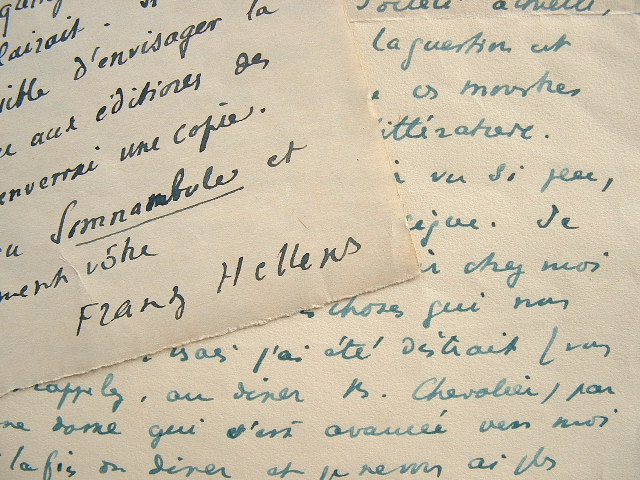 plairait.
d'envisager la
aux éditions des
enverrai une copie.
Somnambule et
vôtre
Franz Hellens
actuelle,
la question et
ces monstres
littérature.
vu si peu,
Je
chez moi
choses qui nous
mais j'ai été distrait (vous
rappelez, au diner B. Chevalier) par
une dame qui s'est avancée vers moi
à la fin du diner et je ne vous ai plus